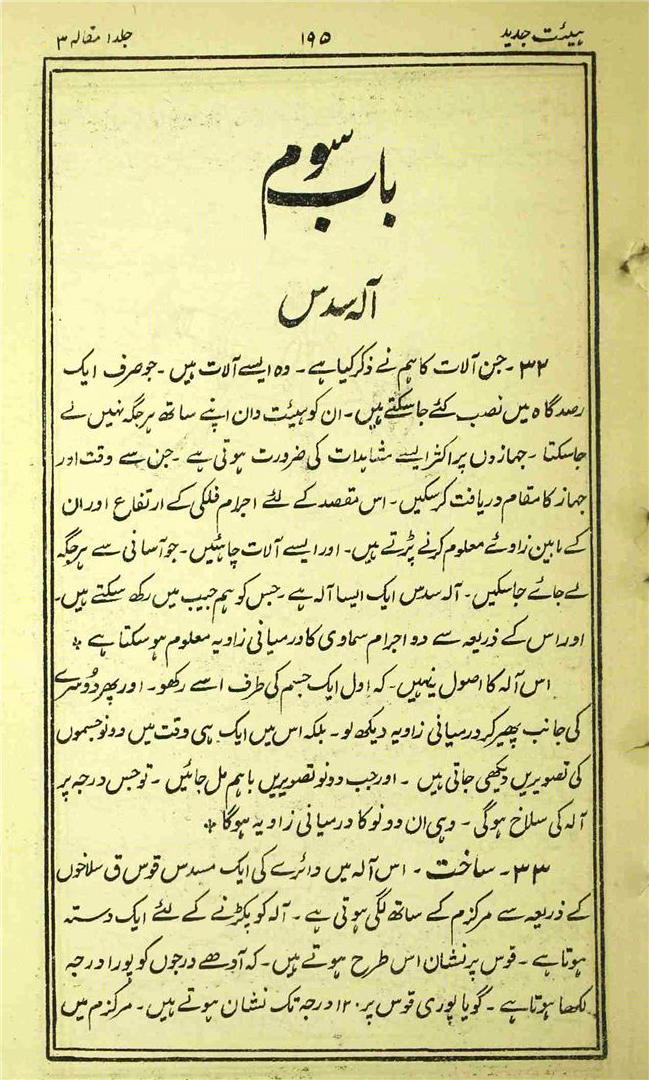 ہیئت جدید ۱۹۵ جلد ۱ مقالہ ۳
باب سوم
آلہ سدس
۳۲ - جن آلات کا ہم نے ذکر کیا ہے - وہ ایسے آلات ہیں - جو صرف ایک
رصدگاہ میں نصب کئے جا سکتے ہیں - ان کو ہیئت دان اپنے ساتھ ہر جگہ نہیں لے
جا سکتا - جہازوں پر اکثر ایسے مشاہدات کی ضرورت ہوتی ہے - جن سے وقت اور
جہاز کا مقام دریافت کر سکیں - اس مقصد کے لئے اجرام فلکی کے ارتفاع اور ان
کے مابین زاوئے معلوم کرنے پڑتے ہیں - اور ایسے آلات چاہئیں - جو آسانی سے ہر جگہ
لے جائے جا سکیں - آلہ سدس ایک ایسا آلہ ہے - جس کو ہم جیب میں رکھ سکتے ہیں -
اور اس کے ذریعہ سے دو اجرام سماوی کا درمیانی زاویہ معلوم ہو سکتا ہے *
اس آلہ کا اصول یہ نہیں - کہ اول ایک جسم کی طرف اسے رکھو - اور پھر دُوسرے
کی جانب پھیر کر درمیانی زاویہ دیکھ لو - بلکہ اس میں ایک ہی وقت میں دونو جسموں
کی تصویریں دیکھی جاتی ہیں - اور جب دونو تصویریں باہم مل جائیں - تو جس درجہ پر
آلہ کی سلاخ ہوگی - وہی ان دونو کا درمیانی زاویہ ہوگا *
۳۳ - ساخت - اس آلہ میں دائرے کی ایک مسدس قوس ق سلاخوں
کے ذریعہ سے مرکز م کے ساتھ لگی ہوتی ہے - آلہ کو پکڑنے کے لئے ایک دستہ
ہوتا ہے - قوس پر نشان اس طرح ہوتے ہیں - کہ آدھے درجوں کو پورا درجہ
لکھا ہوتا ہے - گویا پوری قوس پر ۱۲۰ درجہ تک نشان ہوتے ہیں - مرکز م میں